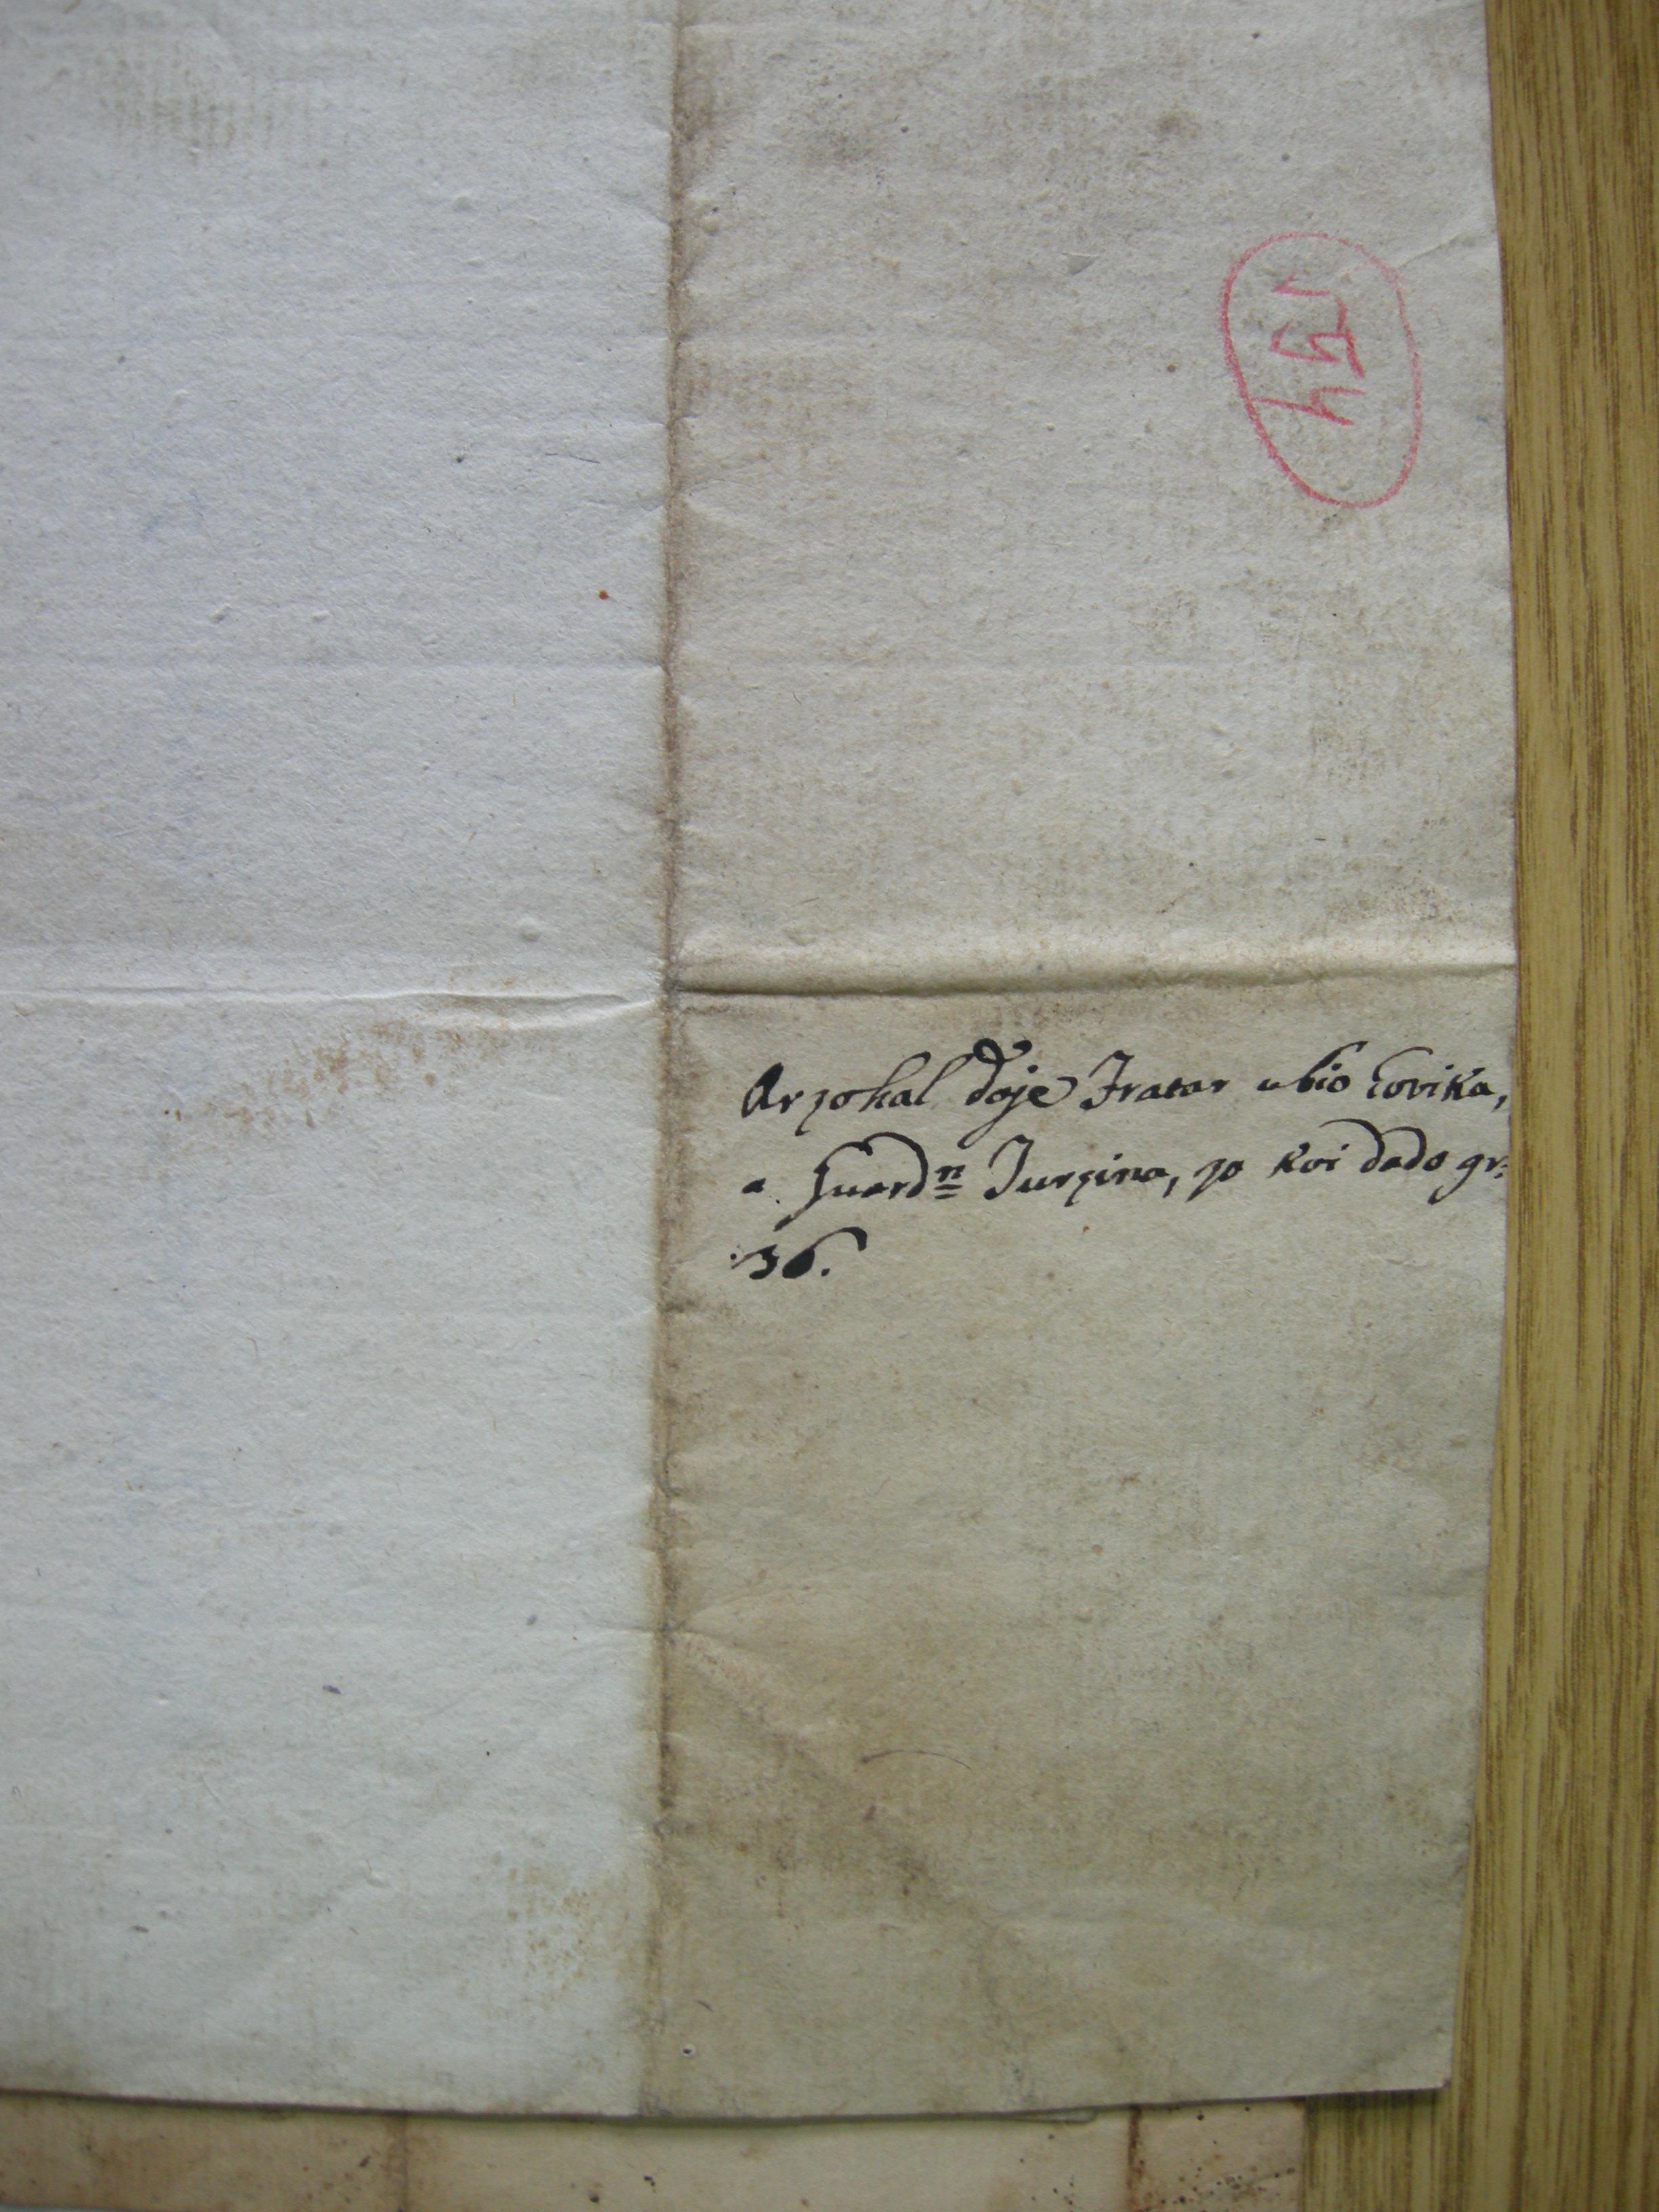 754
Arzohal doje Fratar ubio čovika,
a Guard<u>n</u> Jurzina, zo koi dado gr:
36.